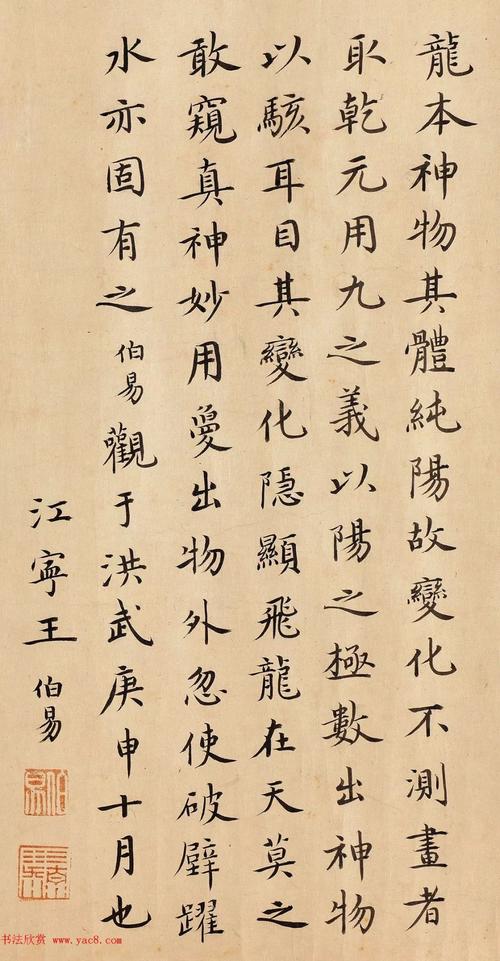 龍本神物其體純陽故變化不測畫者
取乾元用九之義以陽之極數出神物
以駭耳目其變化隱顯飛龍在天莫之
敢窺真神妙用敻出物外忽使破壁躍
水亦固有之伯易觀于洪武庚申十月也
江寧王伯易
书法欣赏 www.yac8.com